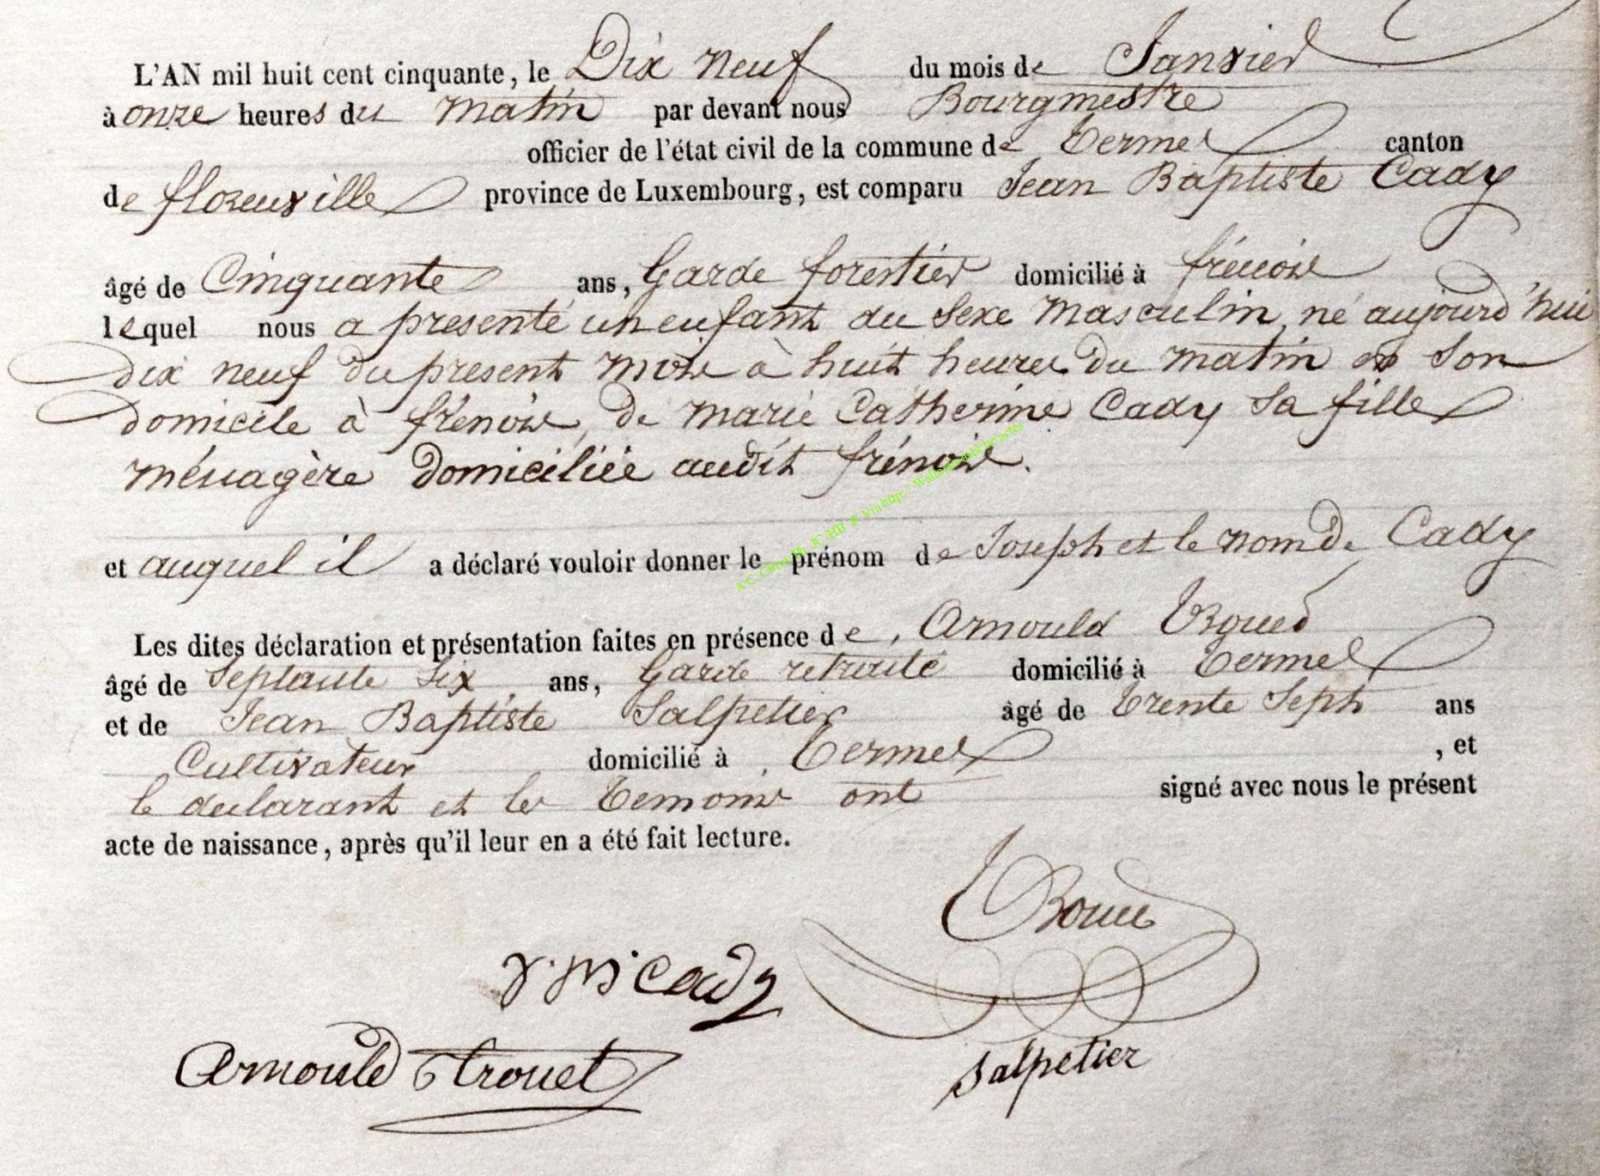 L'AN mil huit cent cinquante, le Dix neuf du mois de Janvier
à onze heures du matin par devant nous Bourgmestre
officier de l'état civil de la commune de Termes canton
de florenville province de Luxembourg, est comparu Jean Baptiste Cady
âgé de Cinquante ans, Garde forestier domicilié à frénois
lequel nous a presenté un enfant du Sexe masculin, né aujourd'hui
dix neuf du present mois à huit heures du matin en Son
domicile à frénois, de marie Catherine Cady Sa fille
ménagère domiciliée audit frénois.
et auquel il a déclaré vouloir donner le prénom de Joseph et le nom de Cady
Les dites déclaration et présentation faites en présence de Arnould
âgé de Septante Six ans, Garde retraité domicilié à Termes
et de Jean Baptiste Salpetier âgé de Trente Sept ans
Cultivateur domicilié à Termes , et
le déclarant et les temoins ont signé avec nous le présent
acte de naissance, après qu'il leur en a été fait lecture.
Cady
Arnould trouet
Salpetier